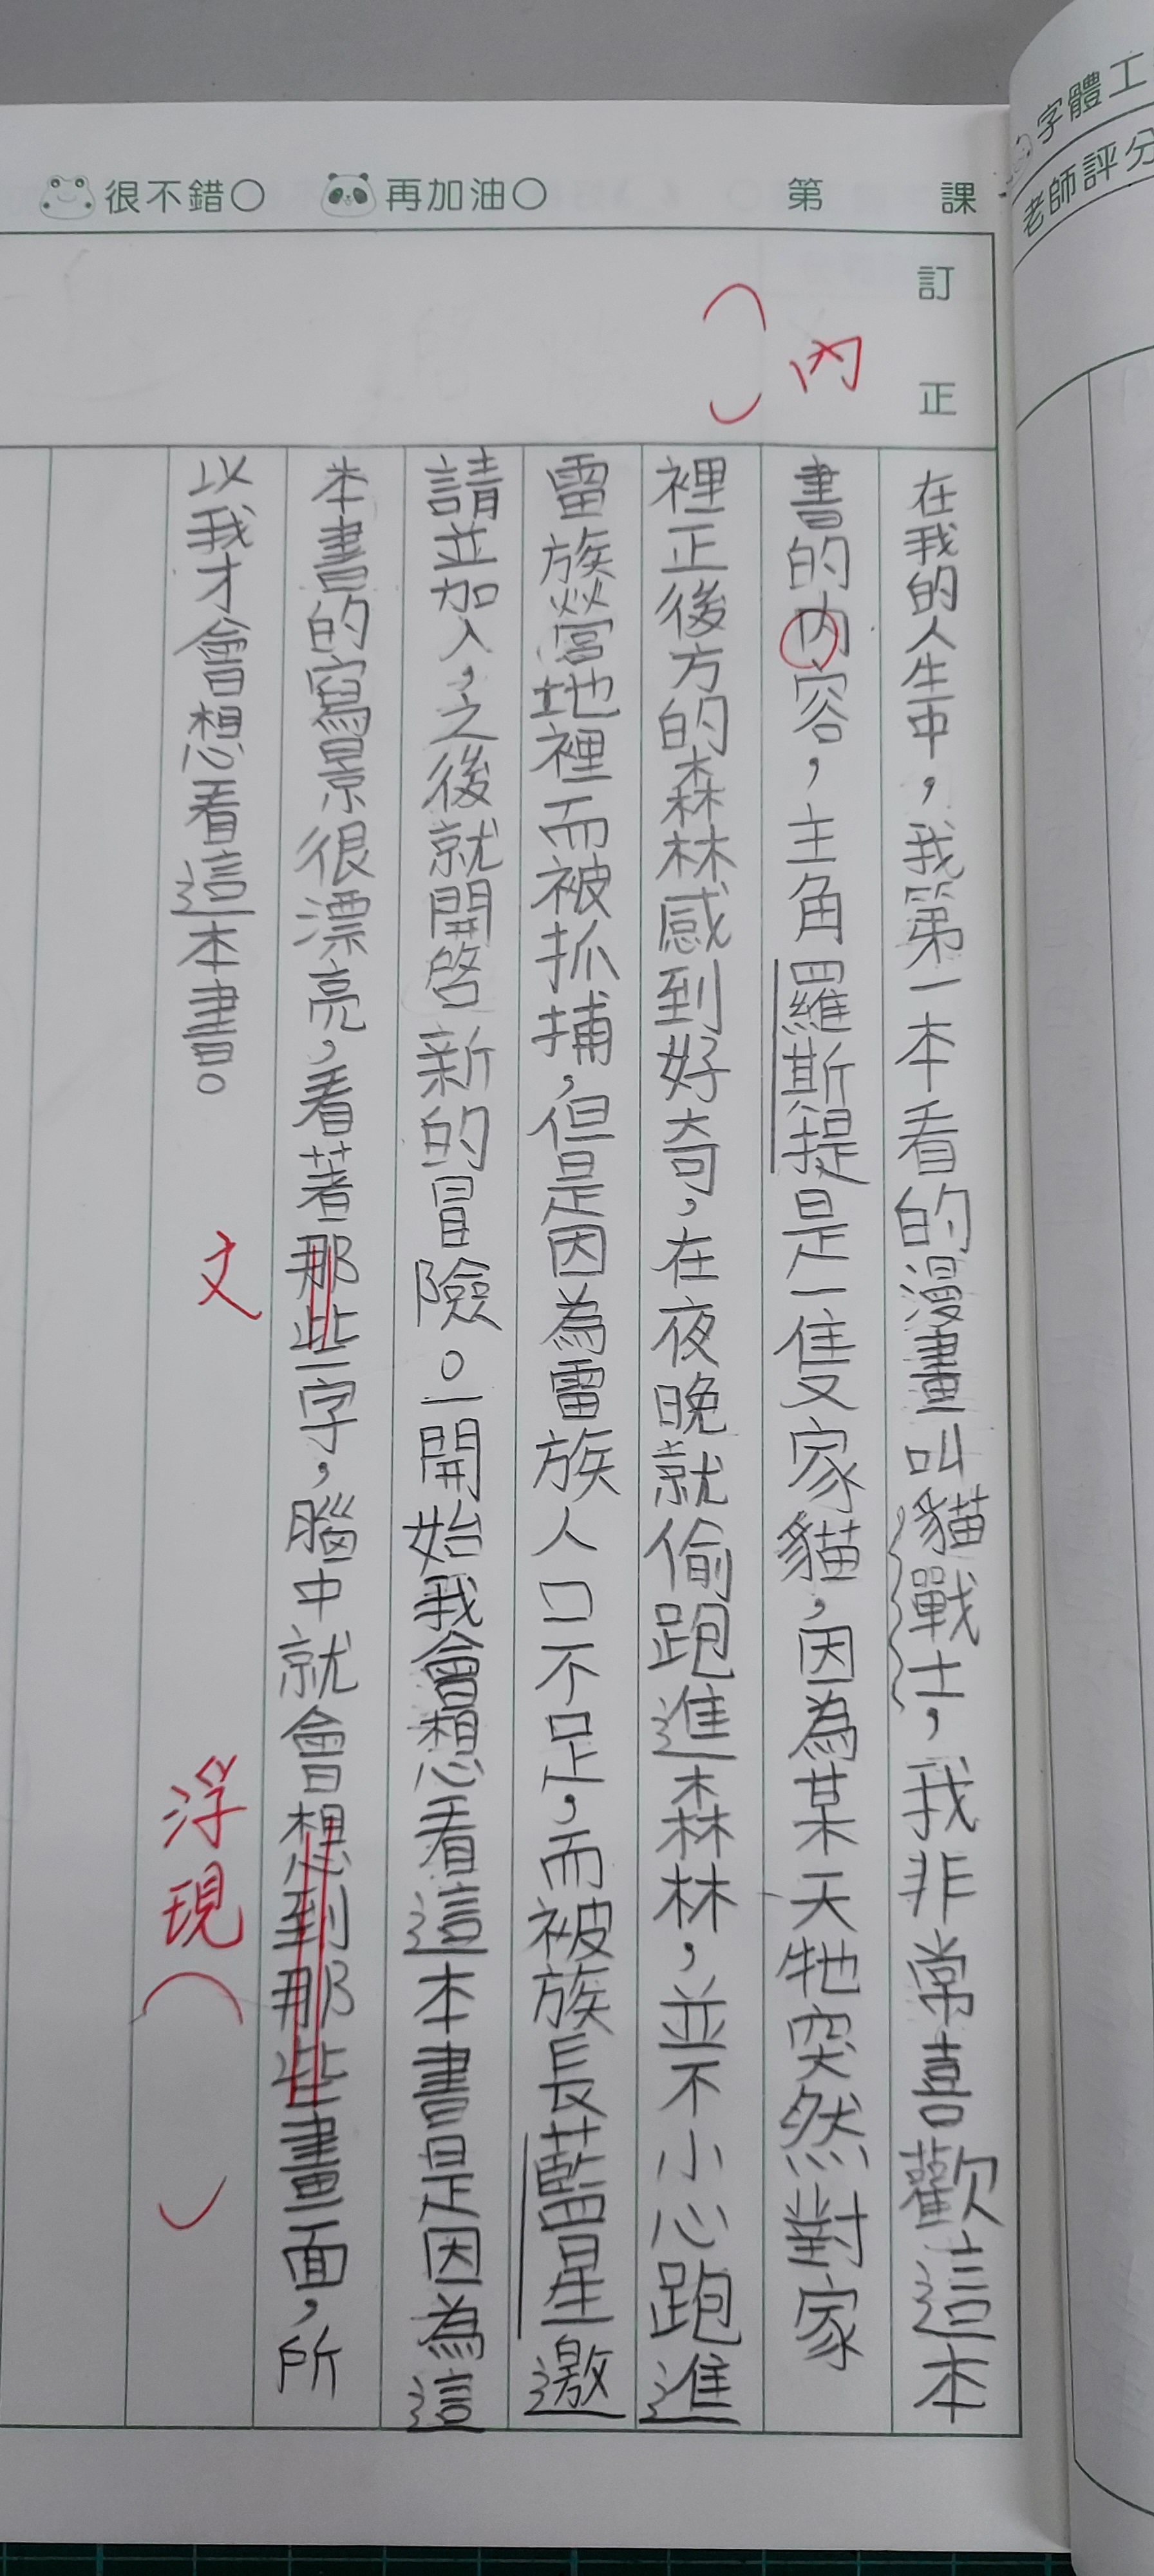 字體工
老師評分
很不錯○ 再加油○ 第 課
訂正
內
在我的人生中，我第一本看的漫畫叫貓戰士，我非常喜歡這本
書的内容，主角羅斯提是一隻家貓，因為某天牠突然對家
裡正後方的森林感到好奇，在夜晚就偷跑進森林，並不小心跑進
雷族營地裡而被抓捕，但是因為雷族人口不足，而被族長藍星邀
請並加入，之後就開啓新的冒險。一開始我會想看這本書是因為這
本書的寫景很漂亮，看著那些字，腦中就會想到那些畫面，所
以我才會想看這本書。
文
浮現